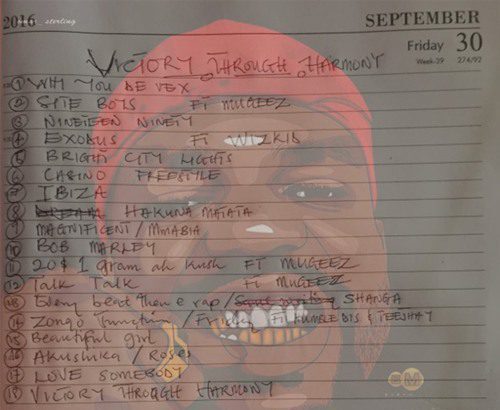 2016
SEPTEMBER
Friday 30
Week-39 274/92
VICTORY THROUGH HARMONY
1 WHY YOU DE VEX
2 SITE BOYS FT MUGEEZ
3 NINETEEN NINETY
4 EXODUS FT WIZKID
5 BRIGHT CITY LIGHTS
6 CASINO FREESTYLE
7 IBIZA
8 HAKUNA MATATA
9 MAGNIFICENT / MMABIA
10 BOB MARLEY
11 20$ 1 gram ah kush FT MUGEEZ
12 Talk Talk Ft MUGEEZ
13 Every beat them e rap / SHANGA
14 Zongo Junction / Ft HUMBLE DIS & TEEJHAY
15 Beautiful girl
16 Akushika / Roses
17 LOVE SOMEBODY
18 VICTORY THROUGH HARMONY